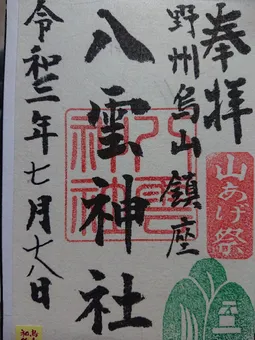 奉拝
野州烏山鎮座
山あげ祭
八雲神社
八雲神社
令和三年七月十八日